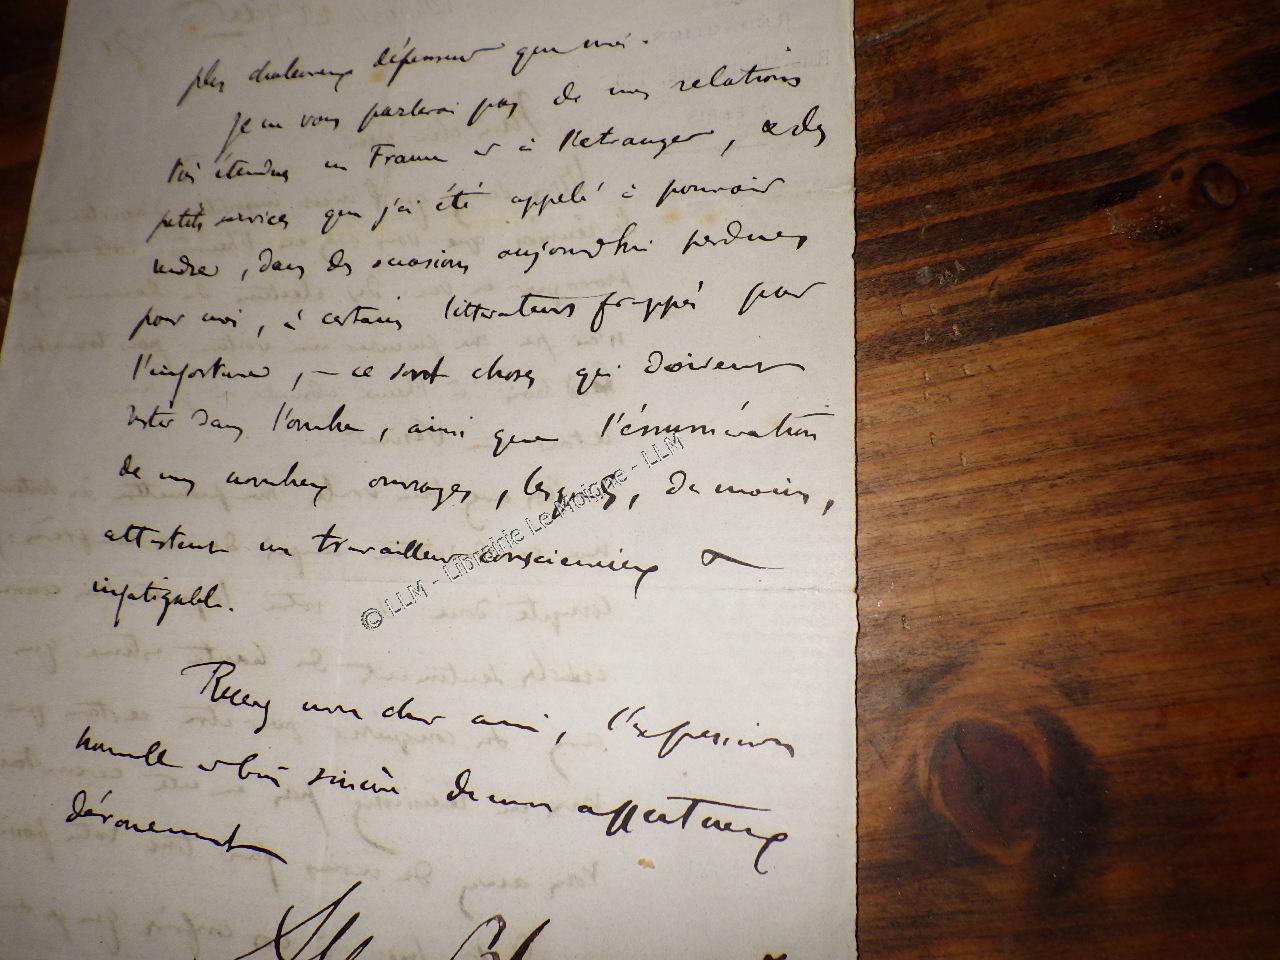 plus chaleureux défenseur que moi.
Je ne vous parlerai pas de mes relations
très étendues en France et à l'étranger, et des
petits services que j'ai été appelé à pouvoir
rendre, dans des occasions aujourd'hui perdues
pour moi, à certains littérateurs frappés par
l'infortune, – ce sont choses qui doivent
rester dans l'ombre, ainsi que l'énumération
de mes nombreux ouvrages, lesquels, du moins,
attestent un travailleur consciencieux et
infatigable.
Recevez mon cher ami, l'expression
nouvelle et bien sincère de mon affectueux
dévouement
© LLM - Librairie Le Moigne - LLM